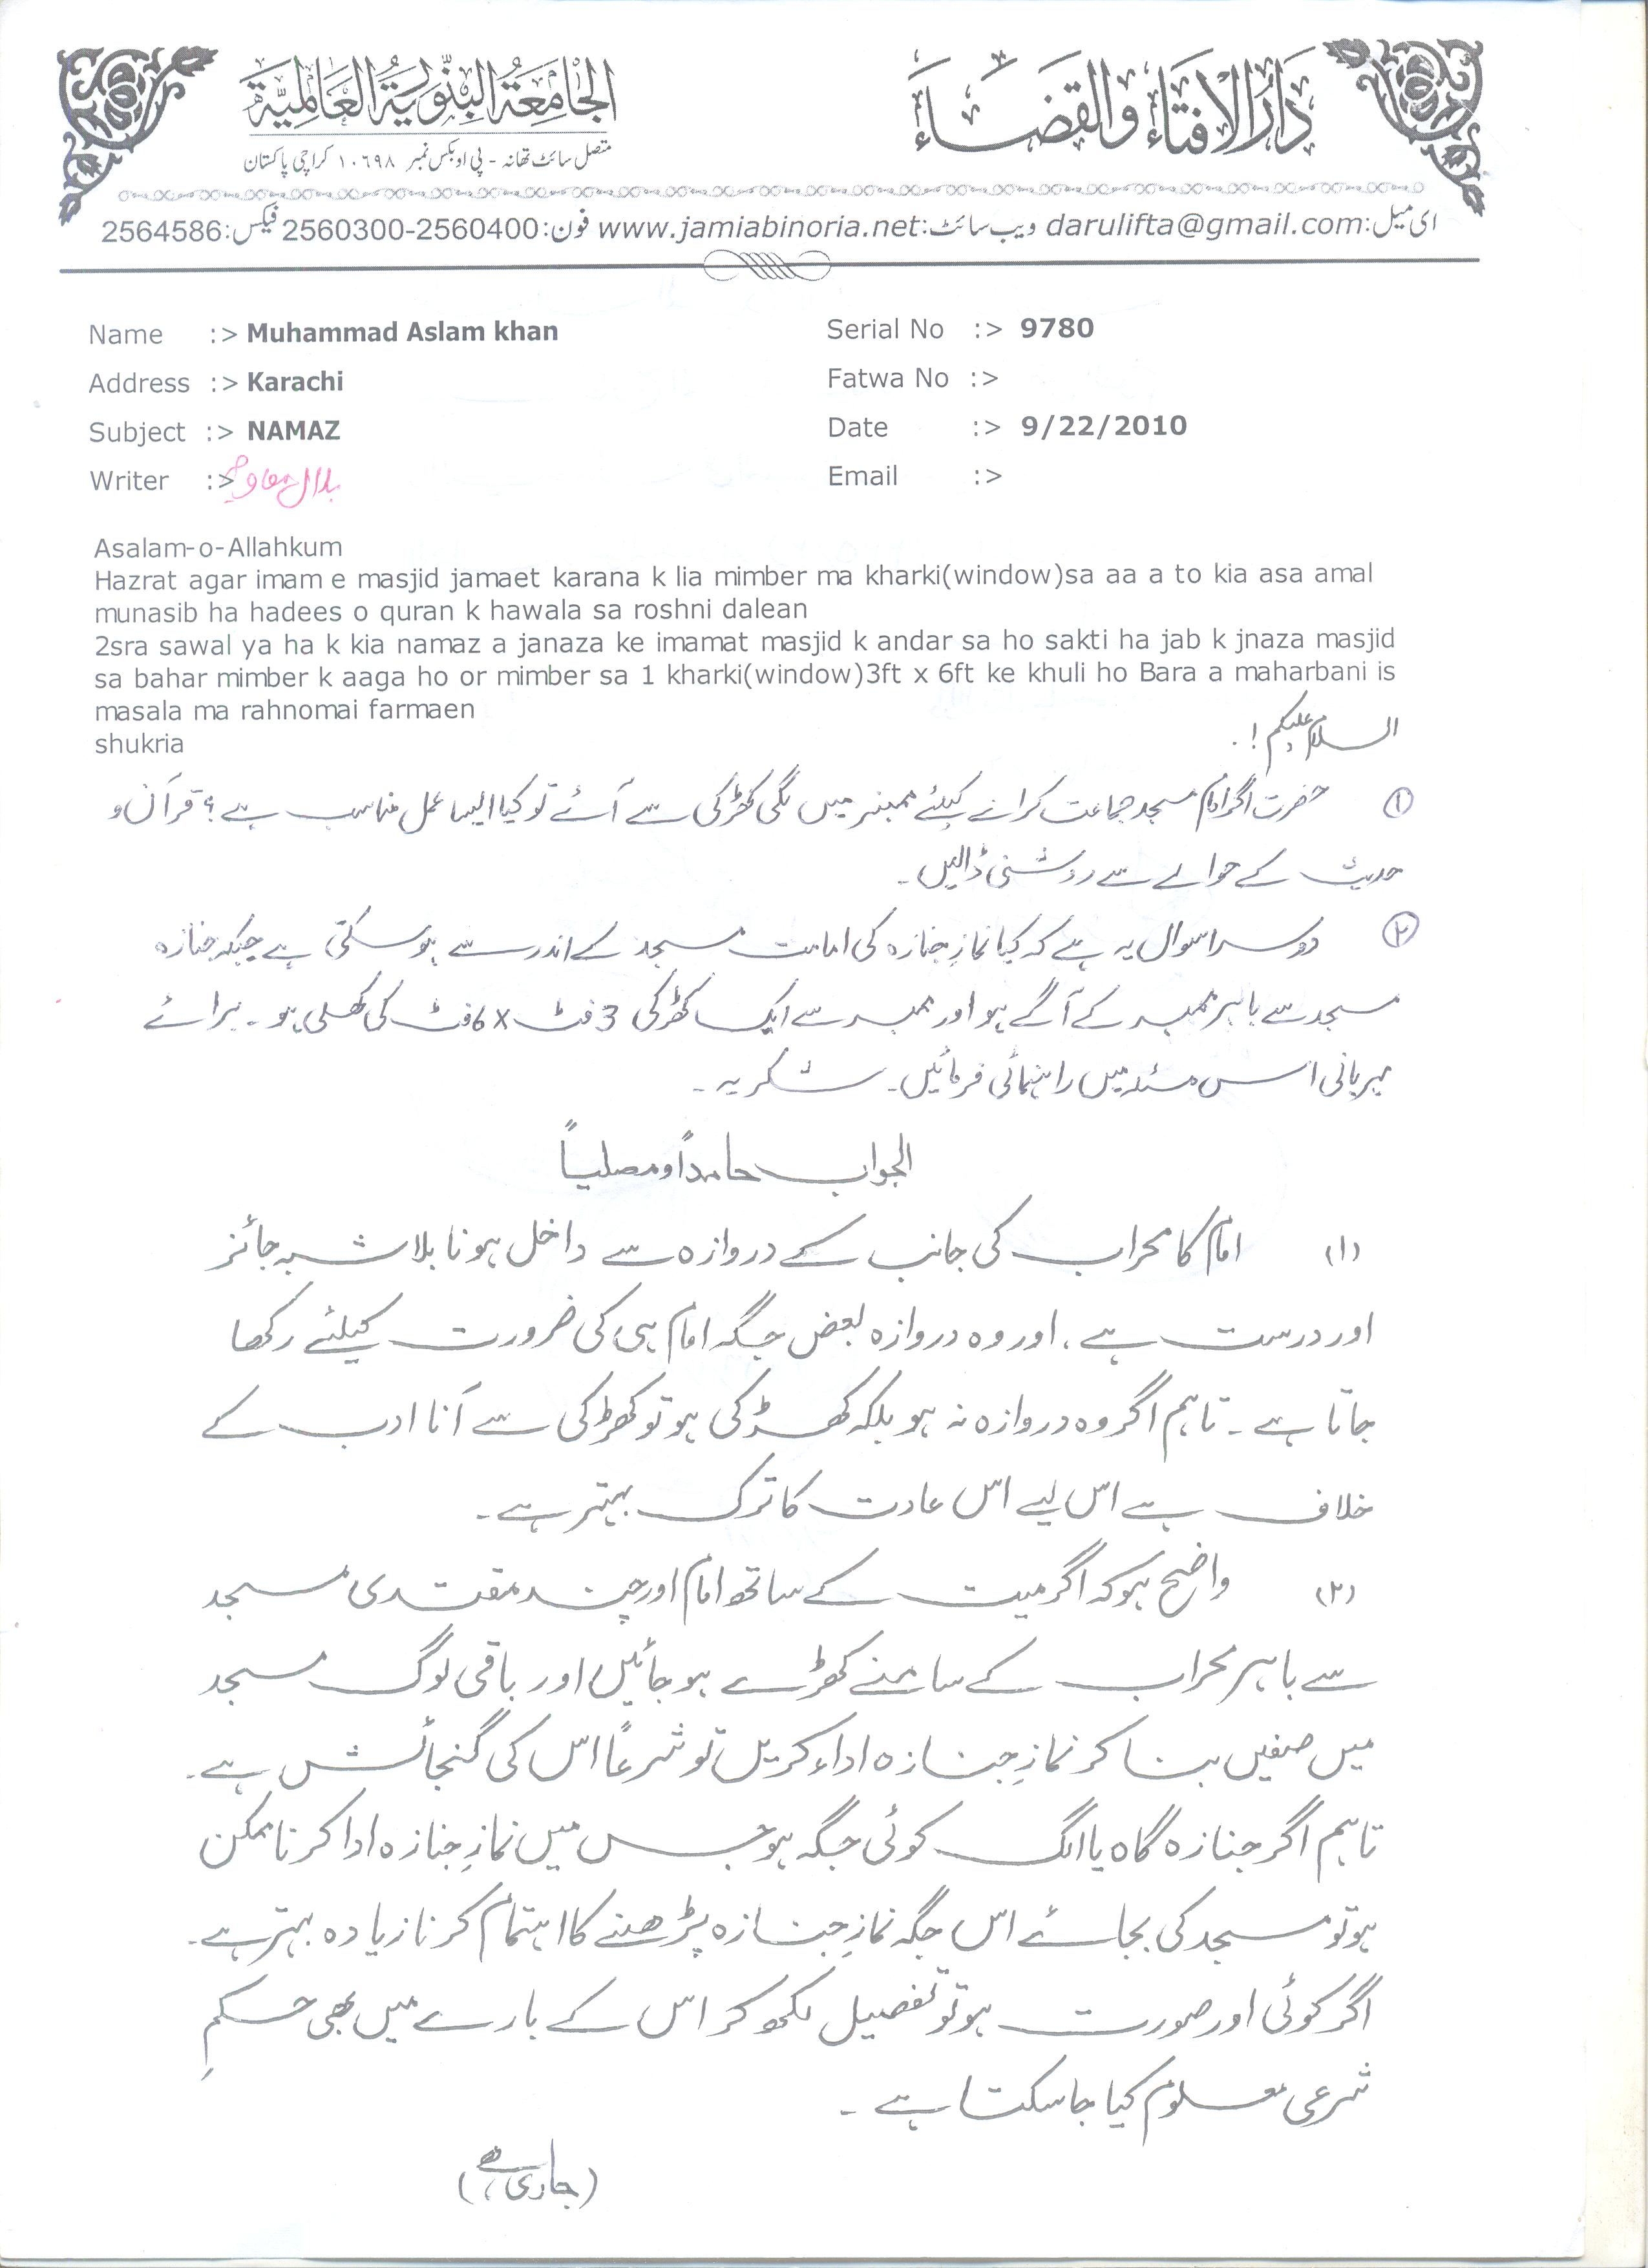 دَارُ الْاِفْتَاءِ وَالْقَضَاءِ
الْجَامِعَةُ الْبِنُّورِيَّةُ الْعَالَمِيَّةُ
متصل سائٹ تھانہ - پی او بکس نمبر ۱۰٦۹۸ کراچی پاکستان
ای میل:darulifta@gmail.com ویب سائٹ:www.jamiabinoria.net فون:2560300-2560400 فیکس:2564586
Name :> Muhammad Aslam khan Serial No :> 9780
Address :> Karachi Fatwa No :>
Subject :> NAMAZ Date :> 9/22/2010
Writer :> بلال معاویہ Email :>
Asalam-o-Allahkum
Hazrat agar imam e masjid jamaet karana k lia mimber ma kharki(window)sa aa a to kia asa amal
munasib ha hadees o quran k hawala sa roshni dalean
2sra sawal ya ha k kia namaz a janaza ke imamat masjid k andar sa ho sakti ha jab k jnaza masjid
sa bahar mimber k aaga ho or mimber sa 1 kharki(window)3ft x 6ft ke khuli ho Bara a maharbani is
masala ma rahnomai farmaen
shukria
السلام علیکم!
① حضرت اگر امام مسجد جماعت کرانے کیلئے ممبر میں لگی کھڑکی سے آئے تو کیا ایسا عمل مناسب ہے؟ قرآن و
حدیث کے حوالے سے روشنی ڈالیں۔
② دوسرا سوال یہ ہے کہ کیا نمازِ جنازہ کی امامت مسجد کے اندر سے ہوسکتی ہے جبکہ جنازہ
مسجد سے باہر ممبر کے آگے ہو اور ممبر سے ایک کھڑکی 3 فٹ x 6 فٹ کی کھلی ہو۔ برائے
مہربانی اس مسئلہ میں راہنمائی فرمائیں۔ شکریہ۔
الجواب حامداً ومصلیاً
(۱) امام کا محراب کی جانب کے دروازہ سے داخل ہونا بلاشبہ جائز
اور درست ہے، اور وہ دروازہ بعض جگہ امام ہی کی ضرورت کیلئے رکھا
جاتا ہے۔ تاہم اگر وہ دروازہ نہ ہو بلکہ کھڑکی ہو تو کھڑکی سے آنا ادب کے
خلاف ہے اس لیے اس عادت کا ترک بہتر ہے۔
(۲) واضح ہو کہ اگر میت کے ساتھ امام اور چند مقتدی مسجد
سے باہر محراب کے سامنے کھڑے ہو جائیں اور باقی لوگ مسجد
میں صفیں بنا کر نمازِ جنازہ اداء کریں تو شرعاً اس کی گنجائش ہے۔
تاہم اگر جنازہ گاہ یا الگ کوئی جگہ ہو جس میں نمازِ جنازہ ادا کرنا ممکن
ہو تو مسجد کی بجائے اس جگہ نمازِ جنازہ پڑھنے کا اہتمام کرنا زیادہ بہتر ہے۔
اگر کوئی اور صورت ہو تو تفصیل لکھ کر اس کے بارے میں بھی حکمِ
شرعی معلوم کیا جا سکتا ہے۔
(جاری ہے)